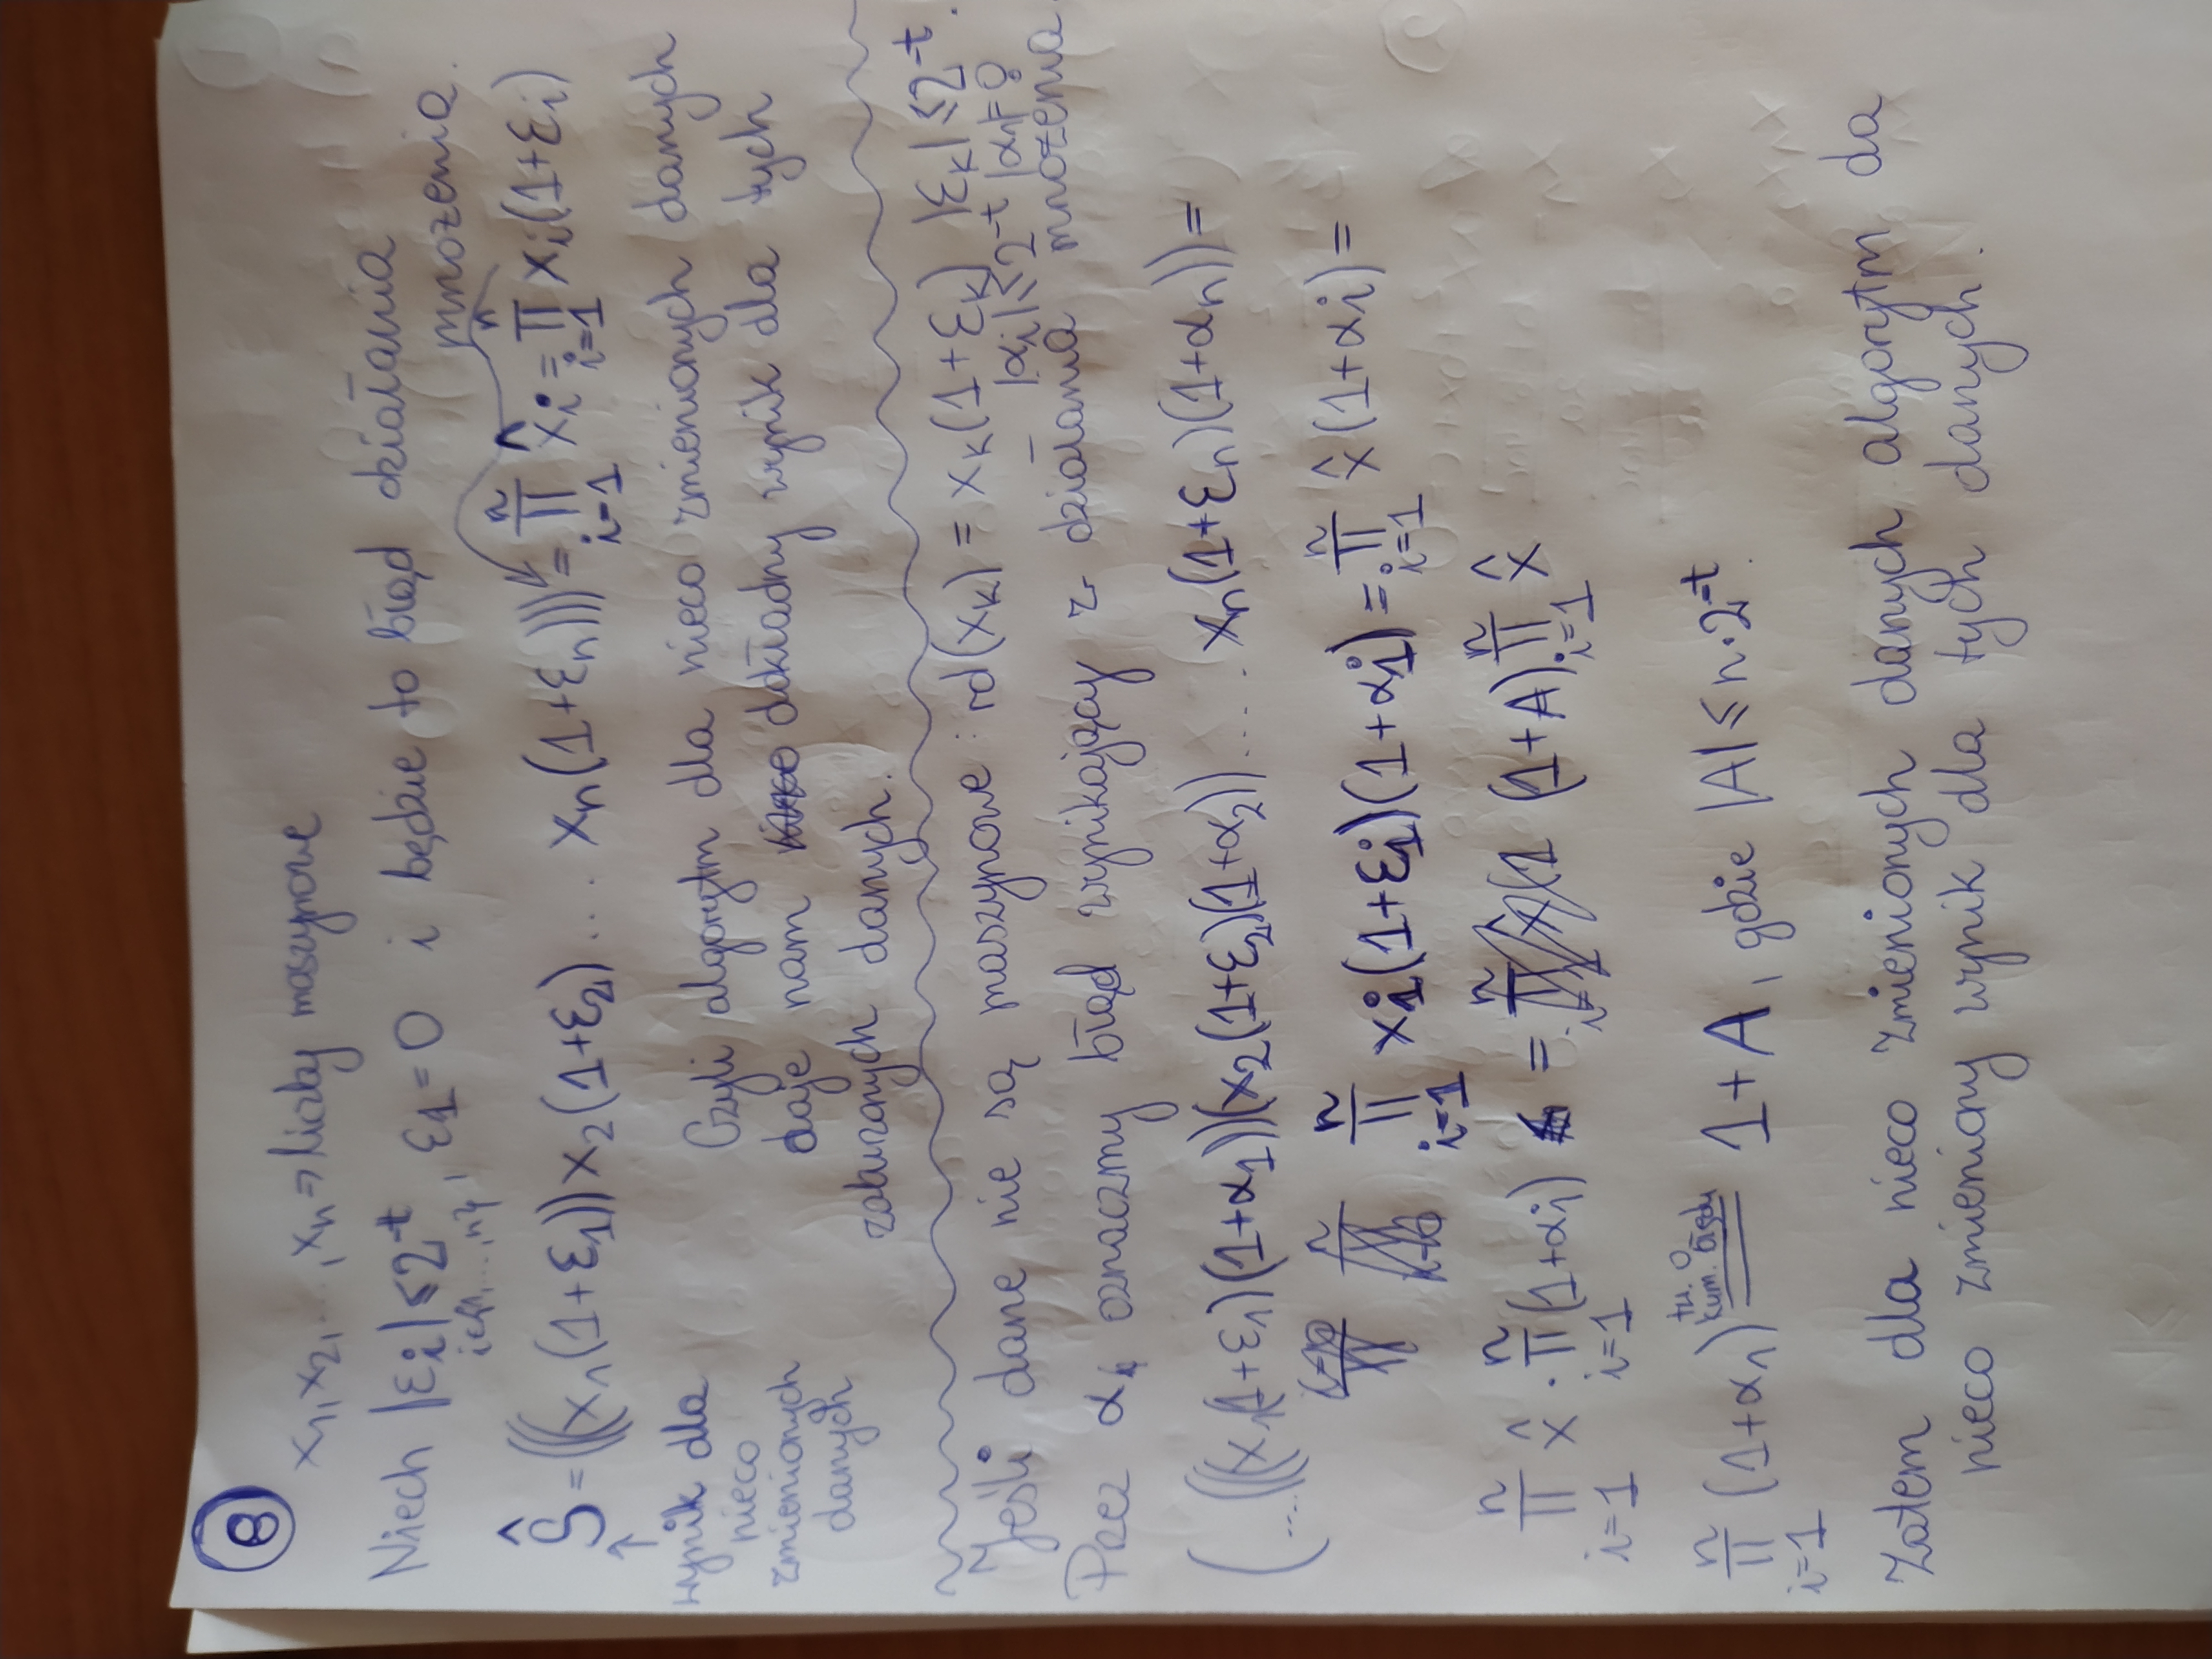 8
x₁, x₂, ..., xₙ ⇒ liczby maszynowe
Niech |εi| ≤ 2^-t, ε1 = 0 i będzie to błąd działania
i∈{1,...,n}
mnożenia.
Ŝ = (((x₁(1+ε₁))x₂(1+ε₂) .... xₙ(1+εₙ))) = ∏_{i=1}^{n} x̂i = ∏_{i=1}^{n} xi(1+εi)
↑
wynik dla
nieco
zmienionych
danych
Czyli algorytm dla nieco zmienionych danych
daje nam dokładny wynik dla tych
zaburzonych danych.
Jeśli dane nie są maszynowe: rd(xₖ) = xₖ(1+εₖ) |εₖ| ≤ 2^-t.
|αi| ≤ 2^-t |α₁|=0
Przez α oznaczmy błąd wynikający z działania mnożenia
(....(((x₁(1+ε₁)(1+α₁))(x₂(1+ε₂)(1+α₂)) ..... xₙ(1+εₙ)(1+αₙ)) =
∏_{i=1}^{n} xi(1+εi)(1+αi) = ∏_{i=1}^{n} x̂(1+αi) =
∏_{i=1}^{n} x̂ · ∏_{i=1}^{n} (1+αi) = (1+A) ∏_{i=1}^{n} x̂
tw. o
kum. błędu
∏_{i=1}^{n} (1+α₁) = 1+A, gdzie |A| ≤ n·2^-t.
Zatem dla nieco zmienionych danych algorytm da
nieco zmieniony wynik dla tych danych.